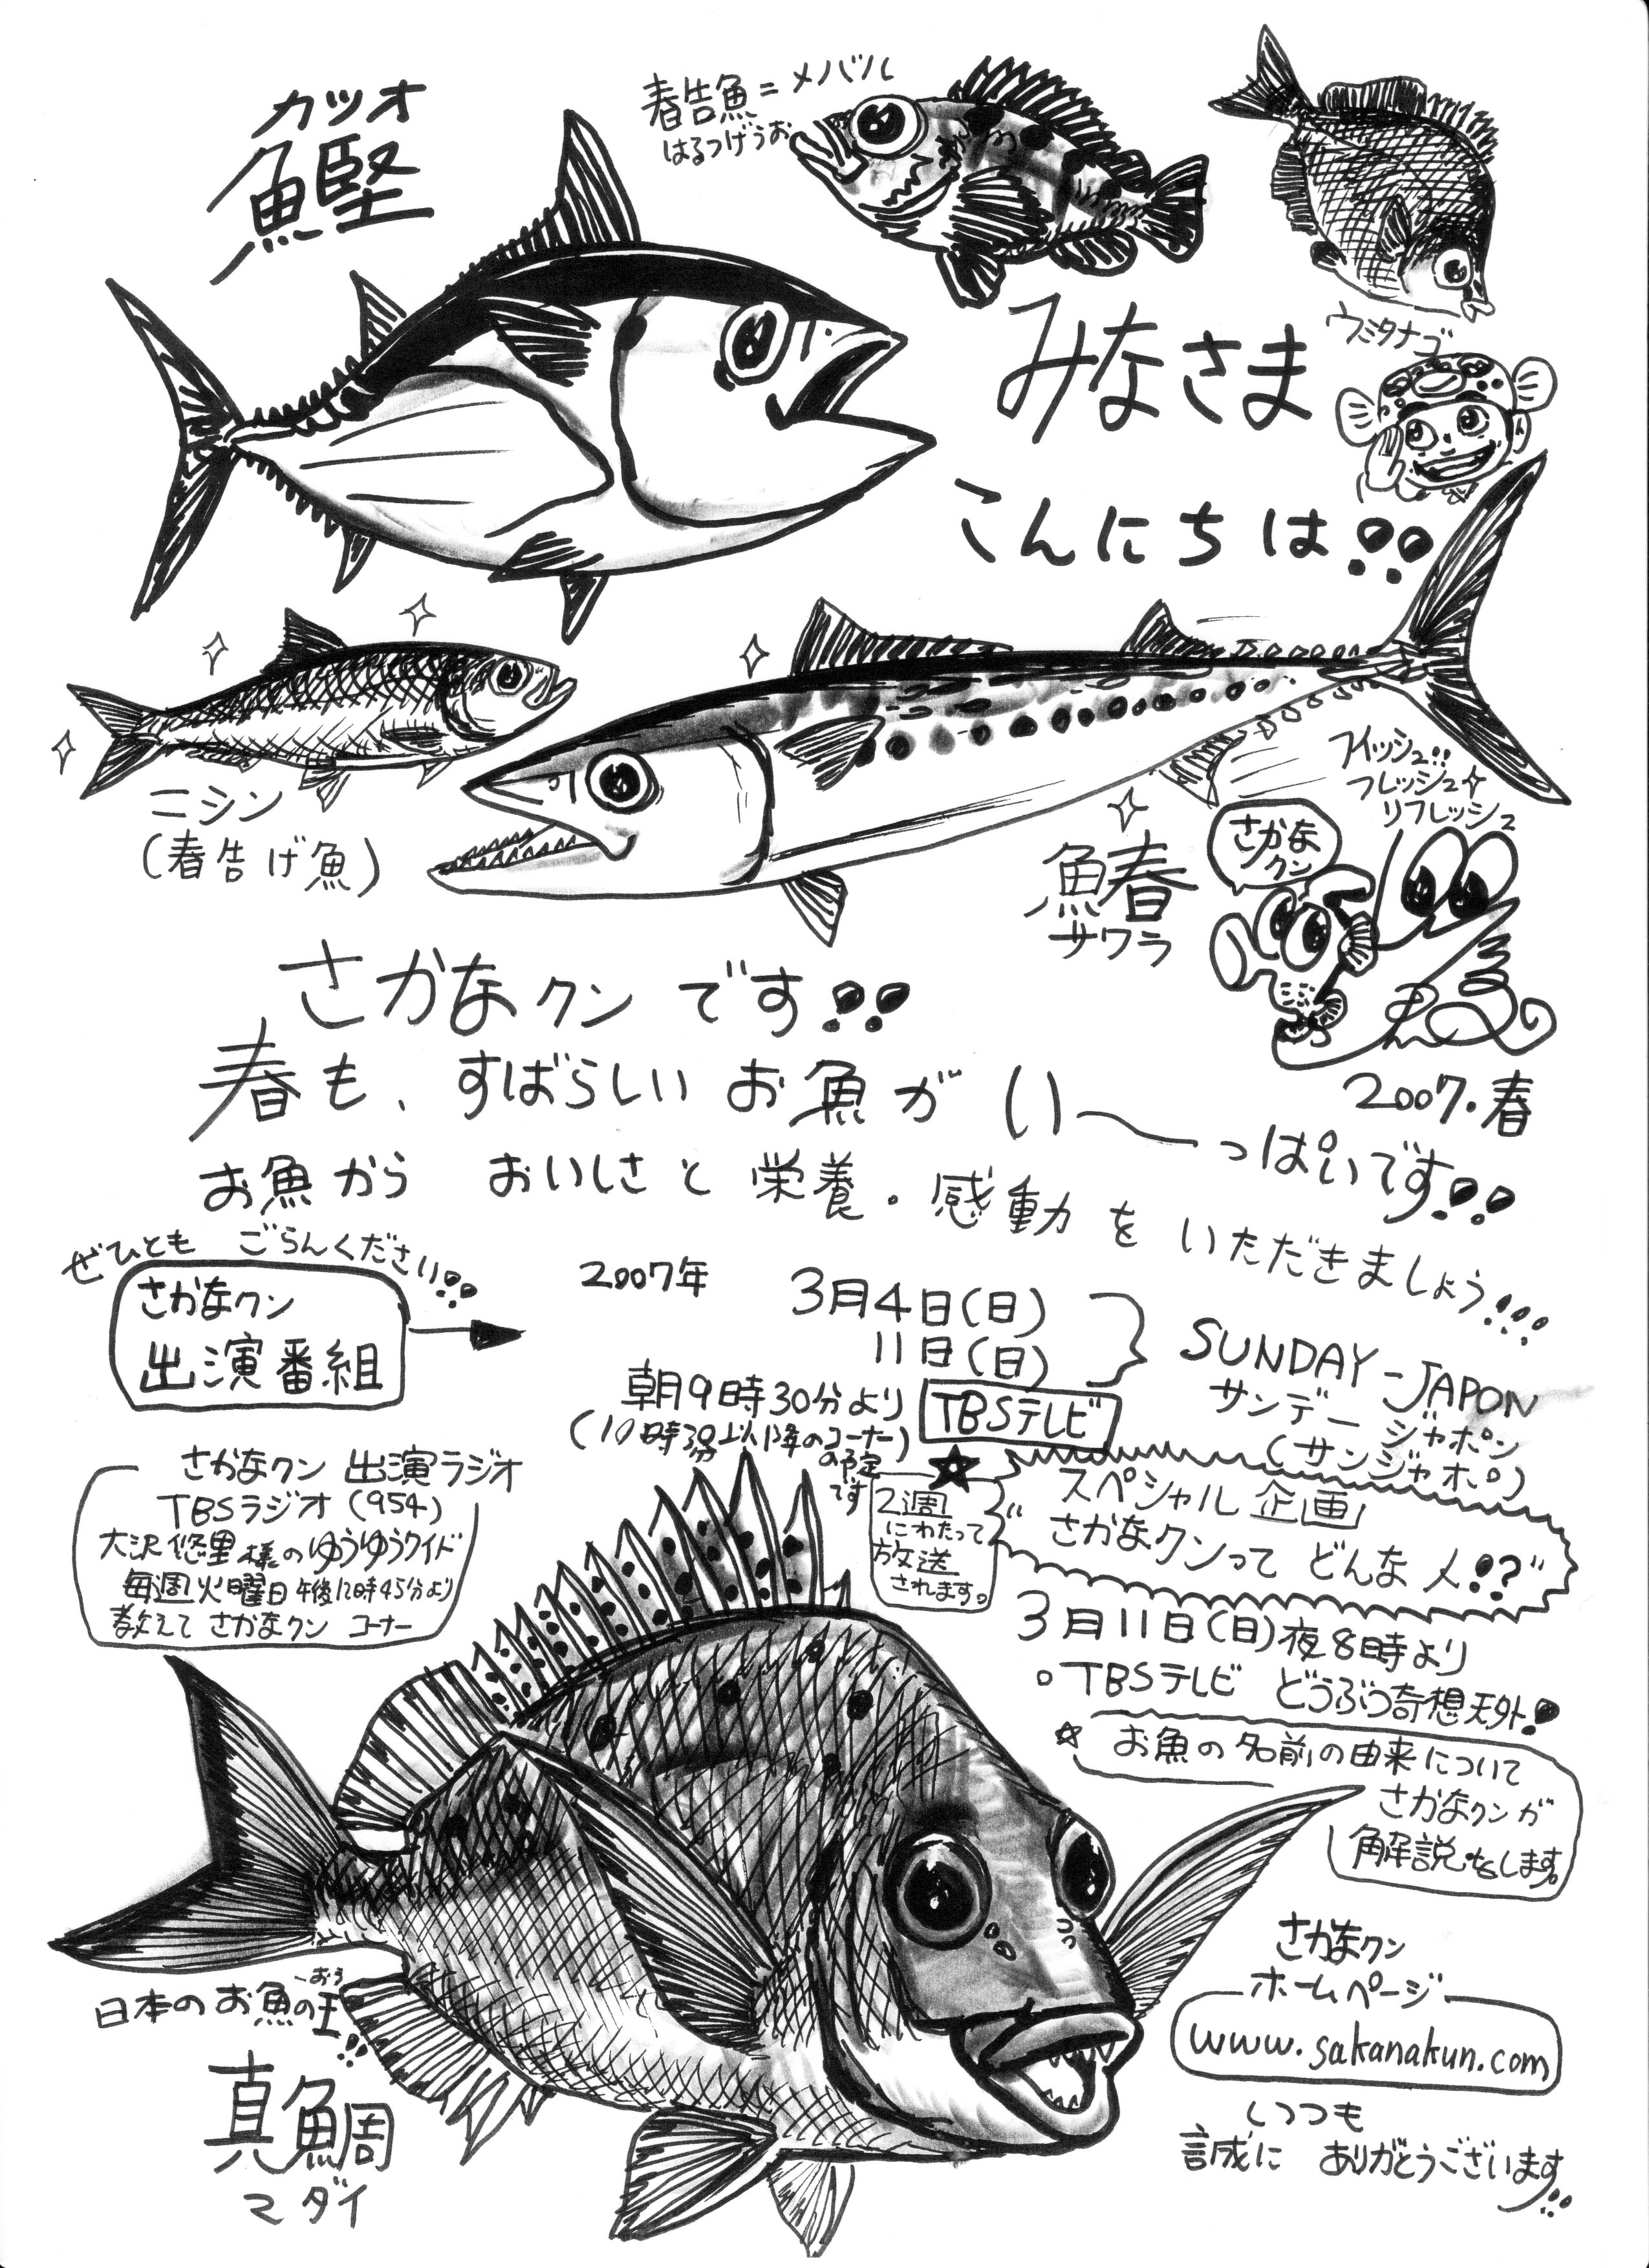 カツオ
鰹
春告魚=メバル
はるつげうお
ウミタナゴ
みなさま
こんにちは!!
ニシン
(春告げ魚)
鰆
サワラ
フィッシュ!!
フレッシュ
リフレッシュ
さかな
クン
2007.春
さかなクンです!!
春も、すばらしいお魚がい〜っぱいです!!
お魚から おいしさと栄養・感動をいただきましょう!!!
ぜひとも ごらんください!!
さかなクン
出演番組
2007年
3月4日(日)
11日(日)
朝9時30分より
(10時30分以降のコーナー
の予定
です)
TBSテレビ
SUNDAY-JAPON
サンデージャポン
(サンジャポ)
★
2週
にわたって
放送
されます。
スペシャル企画
"さかなクンって どんな人!?"
さかなクン 出演ラジオ
TBSラジオ(954)
大沢悠里様のゆうゆうワイド
毎週火曜日 午後12時45分より
教えて さかなクン コーナー
3月11日(日)夜8時より
。TBSテレビ どうぶつ奇想天外!
☆お魚の名前の由来について
さかなクンが
解説をします。
日本のお魚の王!!
おう
真鯛
マダイ
さかなクン
ホームページ
www.sakanakun.com
いつも
誠に ありがとうございます!!